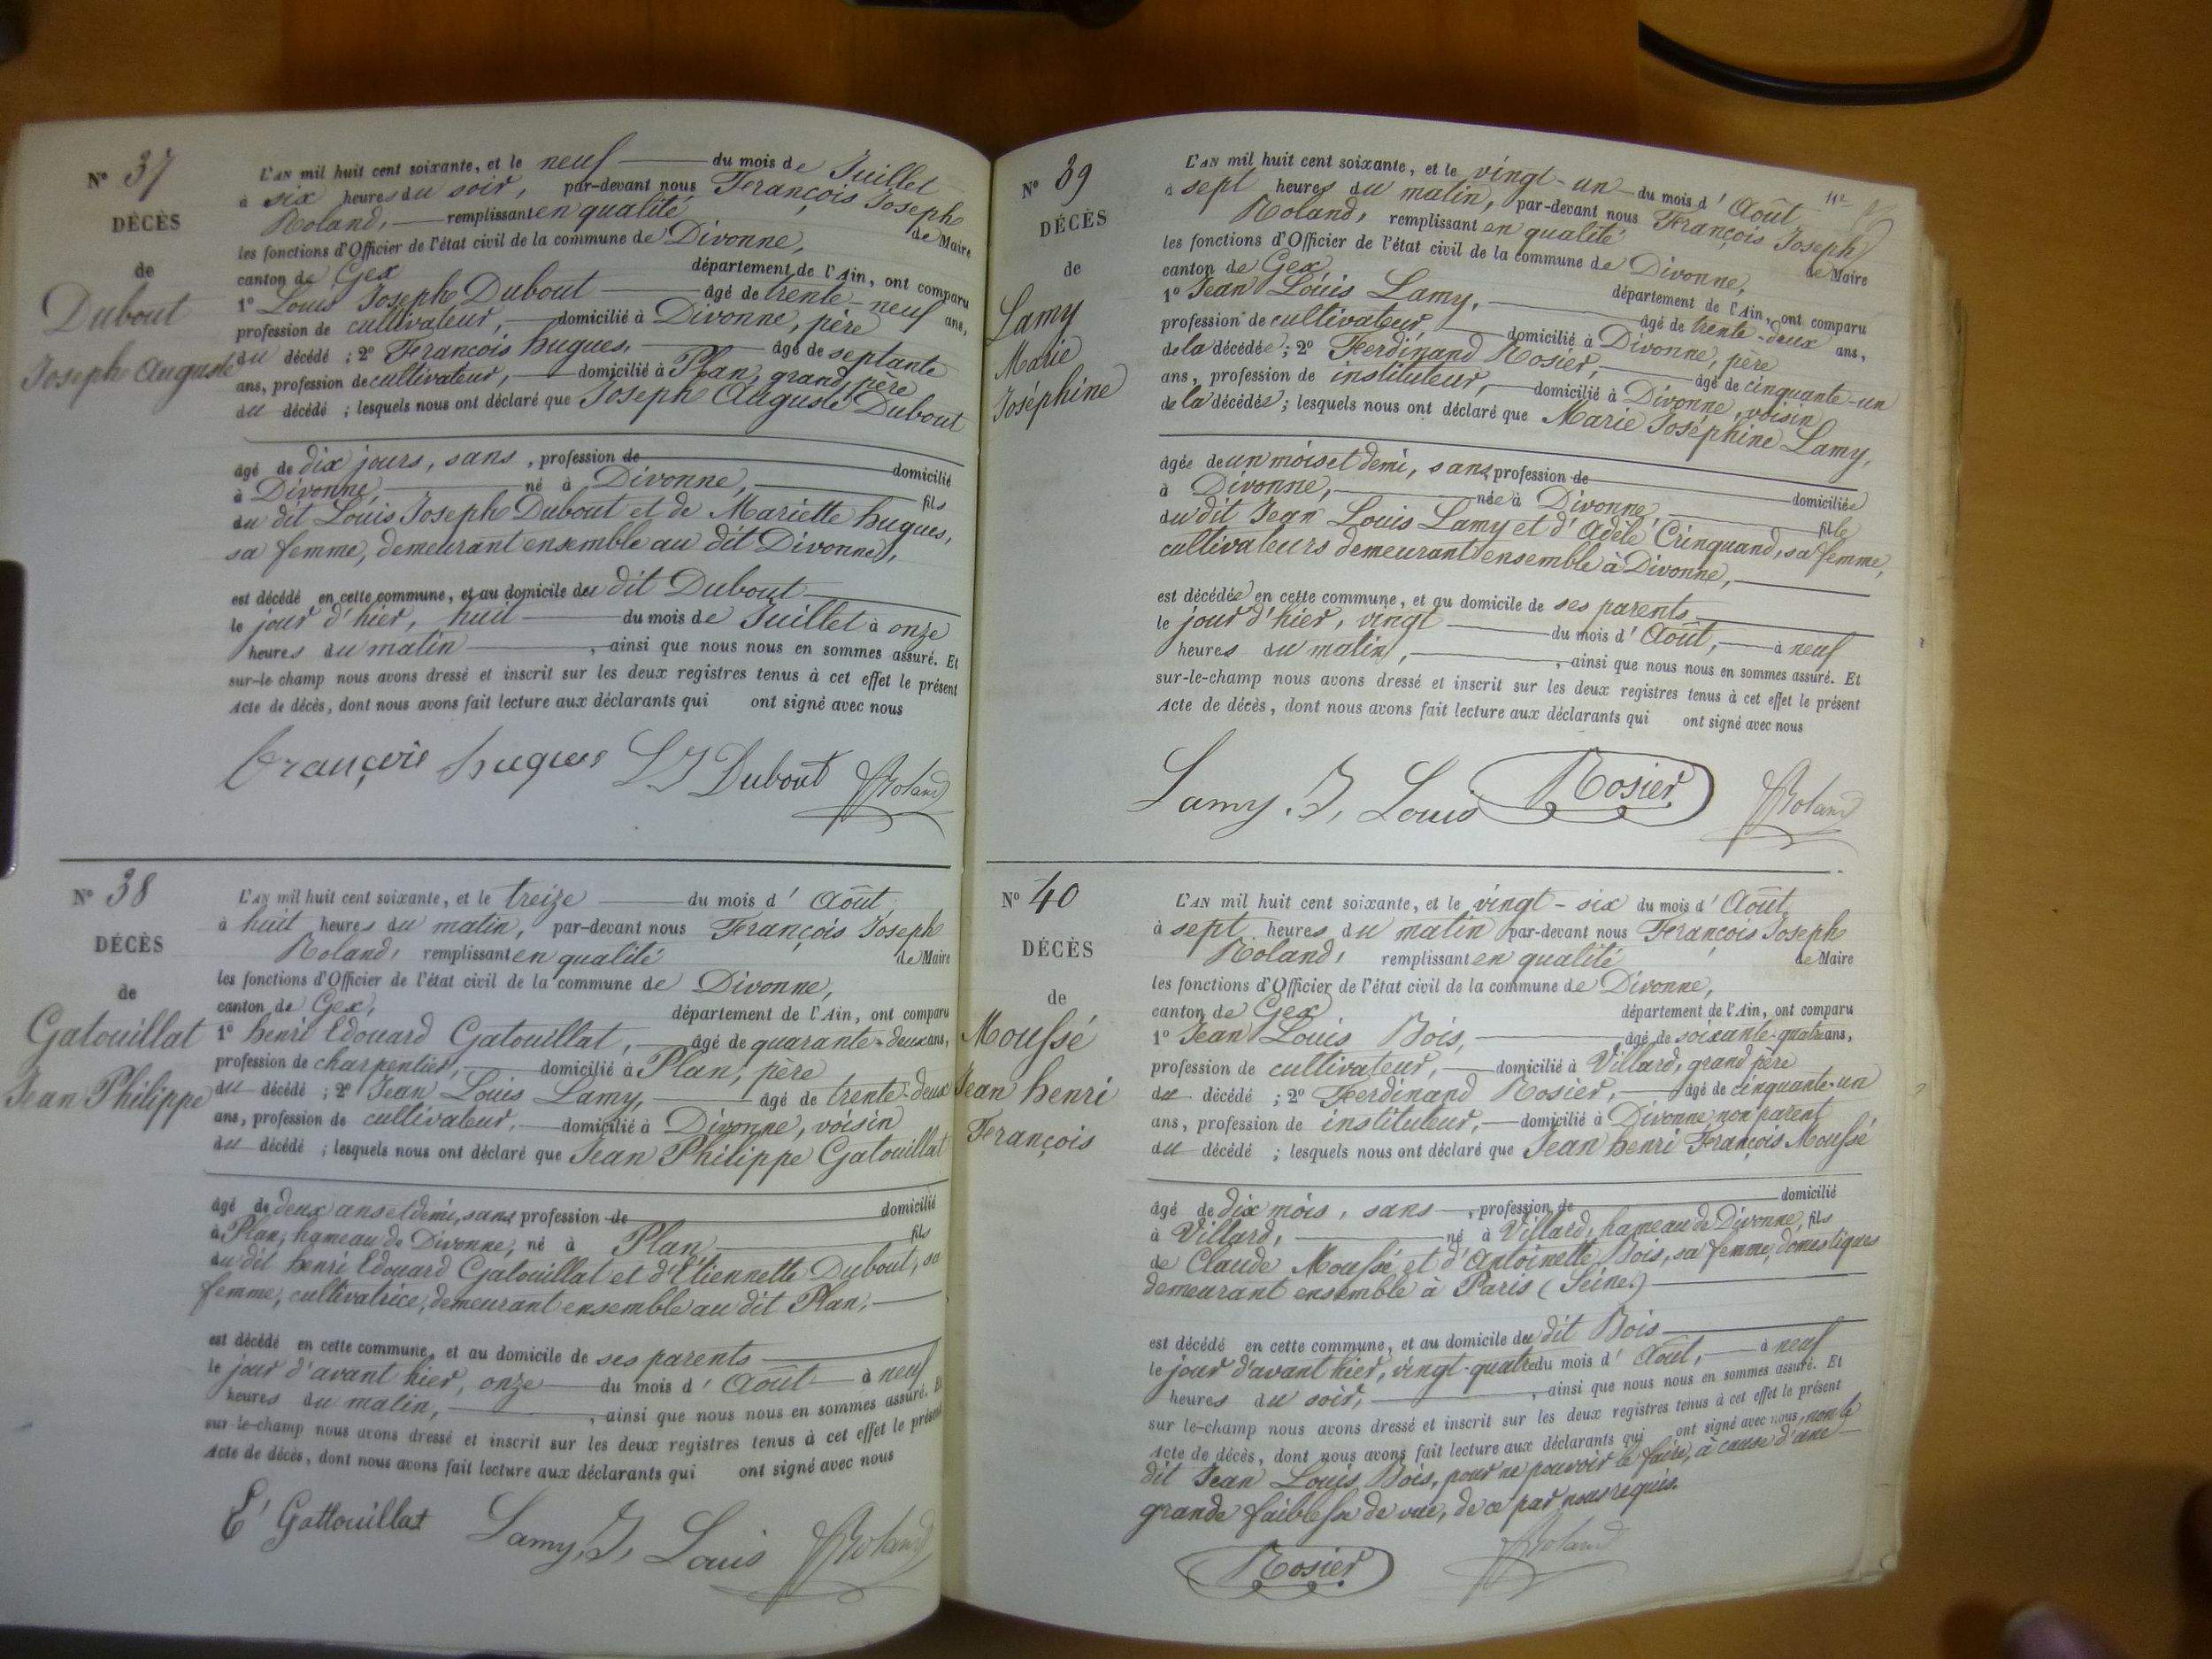 N° 37
DÉCÈS
de
Dubout
Joseph Auguste
L'AN mil huit cent soixante, et le neuf du mois de Juillet
à six heures du soir, par-devant nous François Joseph
Roland, remplissant en qualité de Maire
les fonctions d'Officier de l'état civil de la commune de Divonne,
canton de Gex département de l'Ain, ont comparu
1° Louis Joseph Dubout âgé de trente-neuf ans,
profession de cultivateur, domicilié à Divonne, père
du décédé ; 2° François hugues, âgé de septante
ans, profession de cultivateur, domicilié à Plan, grand père
du décédé ; lesquels nous ont déclaré que Joseph Auguste Dubout
âgé de dix jours, sans, profession de domicilié
à Divonne, né à Divonne, fils
du dit Louis Joseph Dubout et de Mariette hugues,
sa femme, demeurant ensemble au dit Divonne,
est décédé en cette commune, et au domicile du dit Dubout
le jour d'hier, huit du mois de Juillet à onze
heures du matin, ainsi que nous nous en sommes assuré. Et
sur-le-champ nous avons dressé et inscrit sur les deux registres tenus à cet effet le présent
Acte de décès, dont nous avons fait lecture aux déclarants qui ont signé avec nous
François hugues L J Dubout Roland
N° 38
DÉCÈS
de
Gatouillat
Jean Philippe
L'AN mil huit cent soixante, et le treize du mois d' Août
à huit heures du matin, par-devant nous François Joseph
Roland, remplissant en qualité de Maire
les fonctions d'Officier de l'état civil de la commune de Divonne,
canton de Gex, département de l'Ain, ont comparu
1° henri Edouard Gatouillat, âgé de quarante-deux ans,
profession de charpentier, domicilié à Plan, père
du décédé ; 2° Jean Louis Lamy, âgé de trente-deux
ans, profession de cultivateur, domicilié à Divonne, voisin
du décédé ; lesquels nous ont déclaré que Jean Philippe Gatouillat
âgé de deux ans et demi, sans profession de domicilié
à Plan, hameau de Divonne, né à Plan fils
du dit henri Edouard Gatouillat et d'Etiennette Dubout, sa
femme, cultivatrice, demeurant ensemble au dit Plan,
est décédé en cette commune, et au domicile de ses parents
le jour d'avant hier, onze du mois d' Août à neuf
heures du matin, ainsi que nous nous en sommes assuré. Et
sur-le-champ nous avons dressé et inscrit sur les deux registres tenus à cet effet le présent
Acte de décès, dont nous avons fait lecture aux déclarants qui ont signé avec nous
E Gattouillat Lamy, J, Louis Roland
N° 39
DÉCÈS
de
Lamy
Marie
Joséphine
L'AN mil huit cent soixante, et le vingt-un du mois d' Août
à sept heures du matin, par-devant nous François Joseph
Roland, remplissant en qualité de Maire
les fonctions d'Officier de l'état civil de la commune de Divonne,
canton de Gex département de l'Ain, ont comparu
1° Jean Louis Lamy, âgé de trente-deux ans,
profession de cultivateur, domicilié à Divonne, père
de la décédée ; 2° Ferdinand Rosier, âgé de cinquante-un
ans, profession de instituteur, domicilié à Divonne, voisin
de la décédée ; lesquels nous ont déclaré que Marie Joséphine Lamy,
âgée de un mois et demi, sans, profession de domiciliée
à Divonne, née à Divonne, fille
du dit Jean Louis Lamy et d'Adèle Crinquand, sa femme,
cultivateurs demeurant ensemble à Divonne,
est décédée en cette commune, et au domicile de ses parents
le jour d'hier, vingt du mois d' Août, à neuf
heures du matin, ainsi que nous nous en sommes assuré. Et
sur-le-champ nous avons dressé et inscrit sur les deux registres tenus à cet effet le présent
Acte de décès, dont nous avons fait lecture aux déclarants qui ont signé avec nous
Lamy. J, Louis Rosier Roland
N° 40
DÉCÈS
de
Moussé
Jean henri
François
L'AN mil huit cent soixante, et le vingt-six du mois d' Août
à sept heures du matin par-devant nous François Joseph
Roland, remplissant en qualité de Maire
les fonctions d'Officier de l'état civil de la commune de Divonne,
canton de Gex département de l'Ain, ont comparu
1° Jean Louis Bois, âgé de soixante-quatre ans,
profession de cultivateur, domicilié à Villard, grand père
du décédé ; 2° Ferdinand Rosier, âgé de cinquante-un
ans, profession de instituteur, domicilié à Divonne, non parent
du décédé ; lesquels nous ont déclaré que Jean henri François Moussé
âgé de dix mois, sans, profession de domicilié
à Villard, né à Villard, hameau de Divonne, fils
de Claude Moussé et d'Antoinette Bois, sa femme, domestiques
demeurant ensemble à Paris (Seine.)
est décédé en cette commune, et au domicile du dit Bois
le jour d'avant hier, vingt-quatre du mois d' Août, à neuf
heures du soir, ainsi que nous nous en sommes assuré. Et
sur le-champ nous avons dressé et inscrit sur les deux registres tenus à cet effet le présent
Acte de décès, dont nous avons fait lecture aux déclarants qui ont signé avec nous, non le
dit Jean Louis Bois, pour ne pouvoir le faire, à cause d'une
grande faiblesse de vue, de ce par nous requis.
Rosier Roland